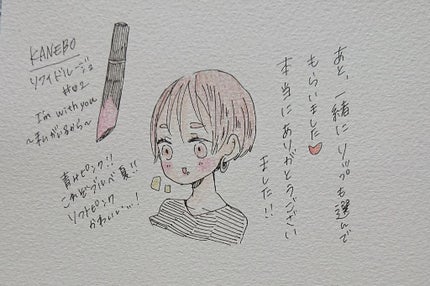 KANEBO
リフィドルージュ
#02
I'm with you
〜まいがいるから〜
青みピンク!!
これぞブルベ夏!!
ソフトピンク
かわいい…!
あと、一緒にリップも選んで
もらいました
本当にありがとうござい
ました!!